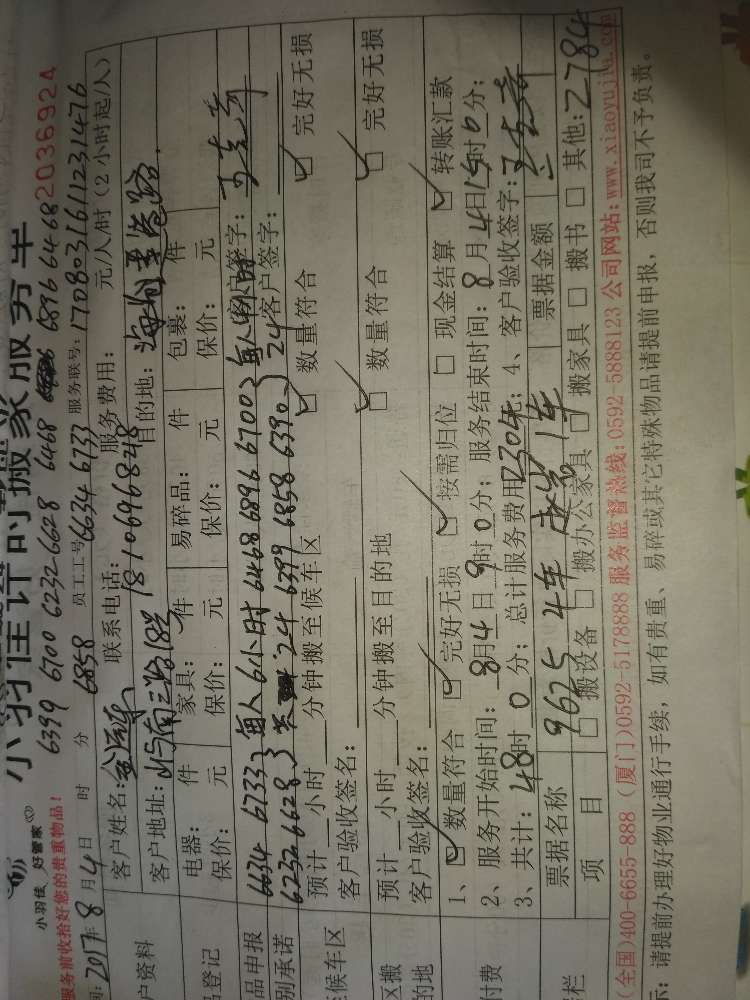 小羽佳计时搬家服务单
小羽佳 好管家
6399 6700 6232 6628 6468 6896 6468 2036924
服务前收拾好您的贵重物品！
2017年8月4日 时 分 6858 员工工号 6634 6733 服务联号：1708031611231476
客户姓名： 联系电话： 服务费用： 元/人/时（2小时起/人）
户资料 客户地址： 18106968 目的地：
电器： 件 家具： 件 易碎品： 件 包裹： 件
登记 保价： 元 保价： 元 保价： 元 保价： 元
品申报 6634 6733 每人6小时 6468 6896 6700 客户签字：
别承诺 6232 6628 24 6399 6858 6390 24 客户签字：
预计 小时 分钟搬至候车区 数量符合 完好无损
至候车区 客户验收签名：
预计 小时 分钟搬至目的地 数量符合 完好无损
区搬 的地 客户验收签名：
1、 数量符合 完好无损 按需归位 现金结算 转账汇款
2、服务开始时间：8月4日9时0分；服务结束时间：8月4日15时0分；
付费 3、共计：48时0分；总计服务费用：2304元；4、客户验收签字：
票据名称 9625 4车 1车 票据金额
栏 项目 搬设备 搬办公家具 搬家具 搬书 其他：2784
(全国)400-6655-888 (厦门)0592-5178888 服务监督热线：0592-5888123 公司网站：www.xiaoyujia.com
示：请提前办理好物业通行手续，如有贵重、易碎或其它特殊物品请提前申报，否则我司不予负责。